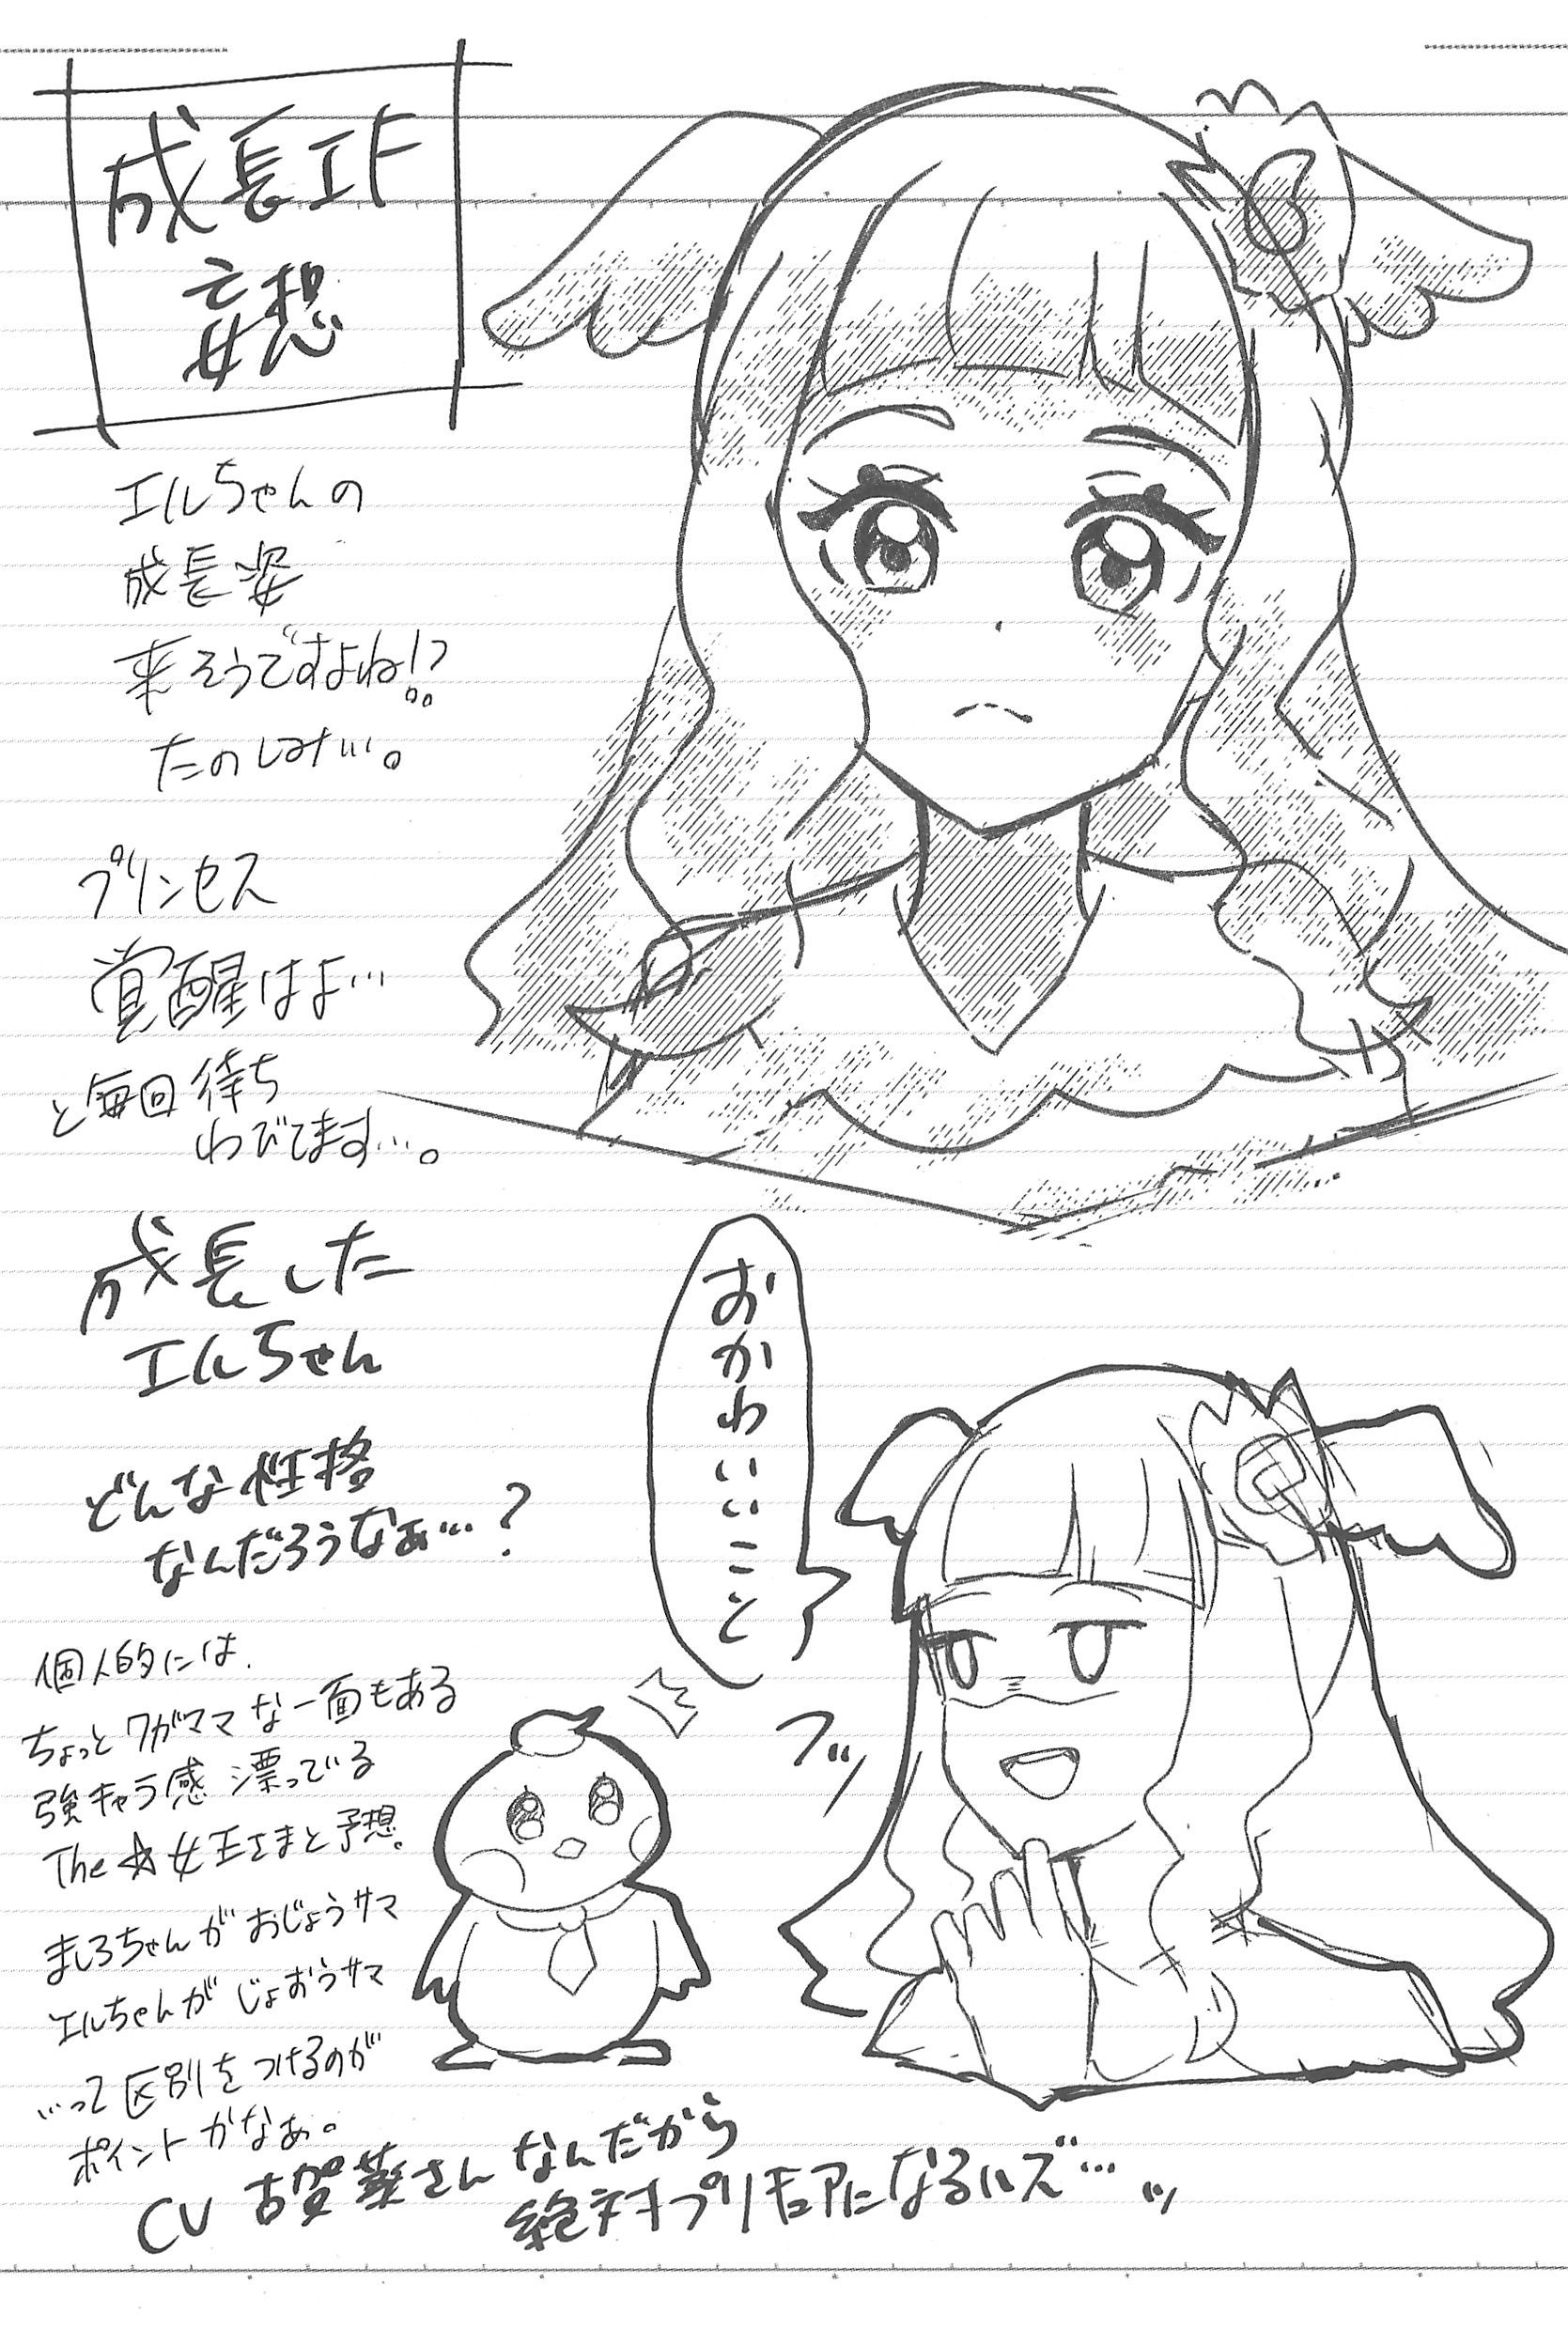 成長エル
妄想
エルちゃんの
成長姿
来そうですよね!?
たのしみ…。
プリンセス
覚醒はよ…
と毎回待ち
わびてます…。
成長した
エルちゃん
どんな性格
なんだろうなぁ…?
個人的には、
ちょっとワガママな一面もある
強キャラ感漂っている
The☆女王さまと予想。
ましろちゃんがおじょうサマ
エルちゃんがじょおうサマ
…って区別をつけるのが
ポイントかなぁ。
CV 古賀葵さんなんだから
絶対プリキュアになるハズ…ッ
おかわいいこと
フッ